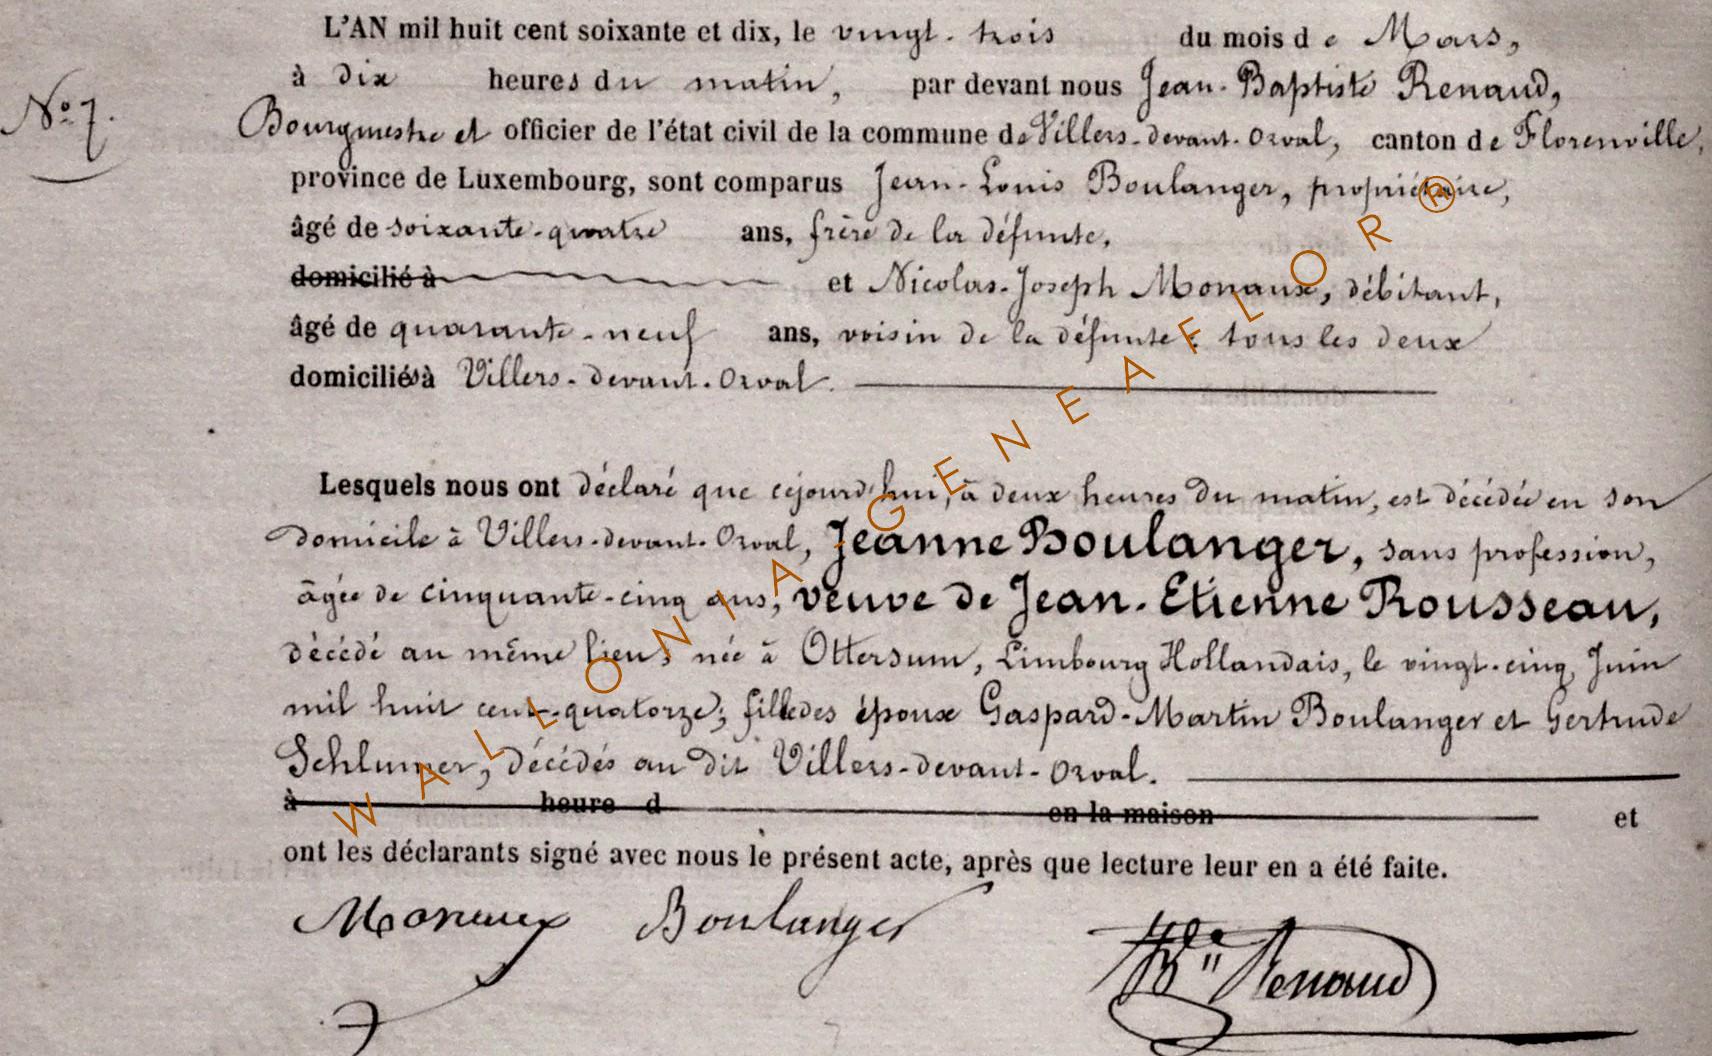 L'AN mil huit cent soixante et dix, le vingt-trois du mois de Mars,
à dix heures du matin, par devant nous Jean-Baptiste Renaud,
No. 7.
Bourgmestre et officier de l'état civil de la commune de Villers-devant-Orval, canton de Florenville,
province de Luxembourg, sont comparus Jean-Louis Boulanger, propriétaire,
âgé de soixante-quatre ans, frère de la défunte,
domicilié à et Nicolas-Joseph Monaux, débitant,
âgé de quarante-neuf ans, voisin de la défunte; tous les deux
domiciliés à Villers-devant-Orval.
Lesquels nous ont déclaré que cejourd'hui, à deux heures du matin, est décédée en son
domicile à Villers-devant-Orval, Jeanne Boulanger, sans profession,
âgée de cinquante-cinq ans, veuve de Jean-Etienne Rousseau,
décédé au même lieu, née à Ottersum, Limbourg Hollandais, le vingt-cinq Juin
mil huit cent-quatorze; fille des époux Gaspard-Martin Boulanger et Gertrude
Schlumer, décédés au dit Villers-devant-Orval.
à heure d en la maison et
ont les déclarants signé avec nous le présent acte, après que lecture leur en a été faite.
Monaux Boulanger Renaud
WALLONIA-GENEAFLOR®